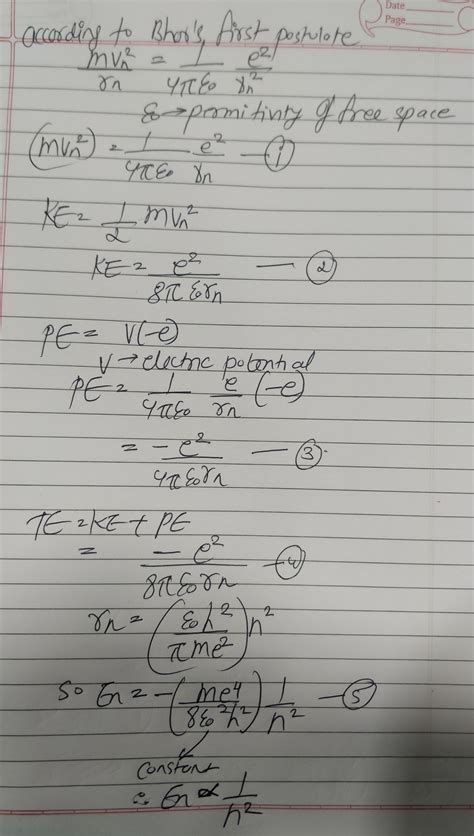 Date
Page
according to Bhor's first postulate
mvn²/rn = 1/4πε0 e²/rn²
ε0 → permitivity of free space
(mvn²) = 1/4πε0 e²/rn — ①
KE = 1/2 mvn²
KE = e²/8πε0rn — ②
PE = V(-e)
V → electric potential
PE = 1/4πε0 e/rn (-e)
= -e²/4πε0rn — ③
TE = KE + PE
= -e²/8πε0rn — ④
rn = (ε0h²/πme²) n²
so En = -(me⁴/8ε0²h²) 1/n² — ⑤
constant
∴ En ∝ 1/n²